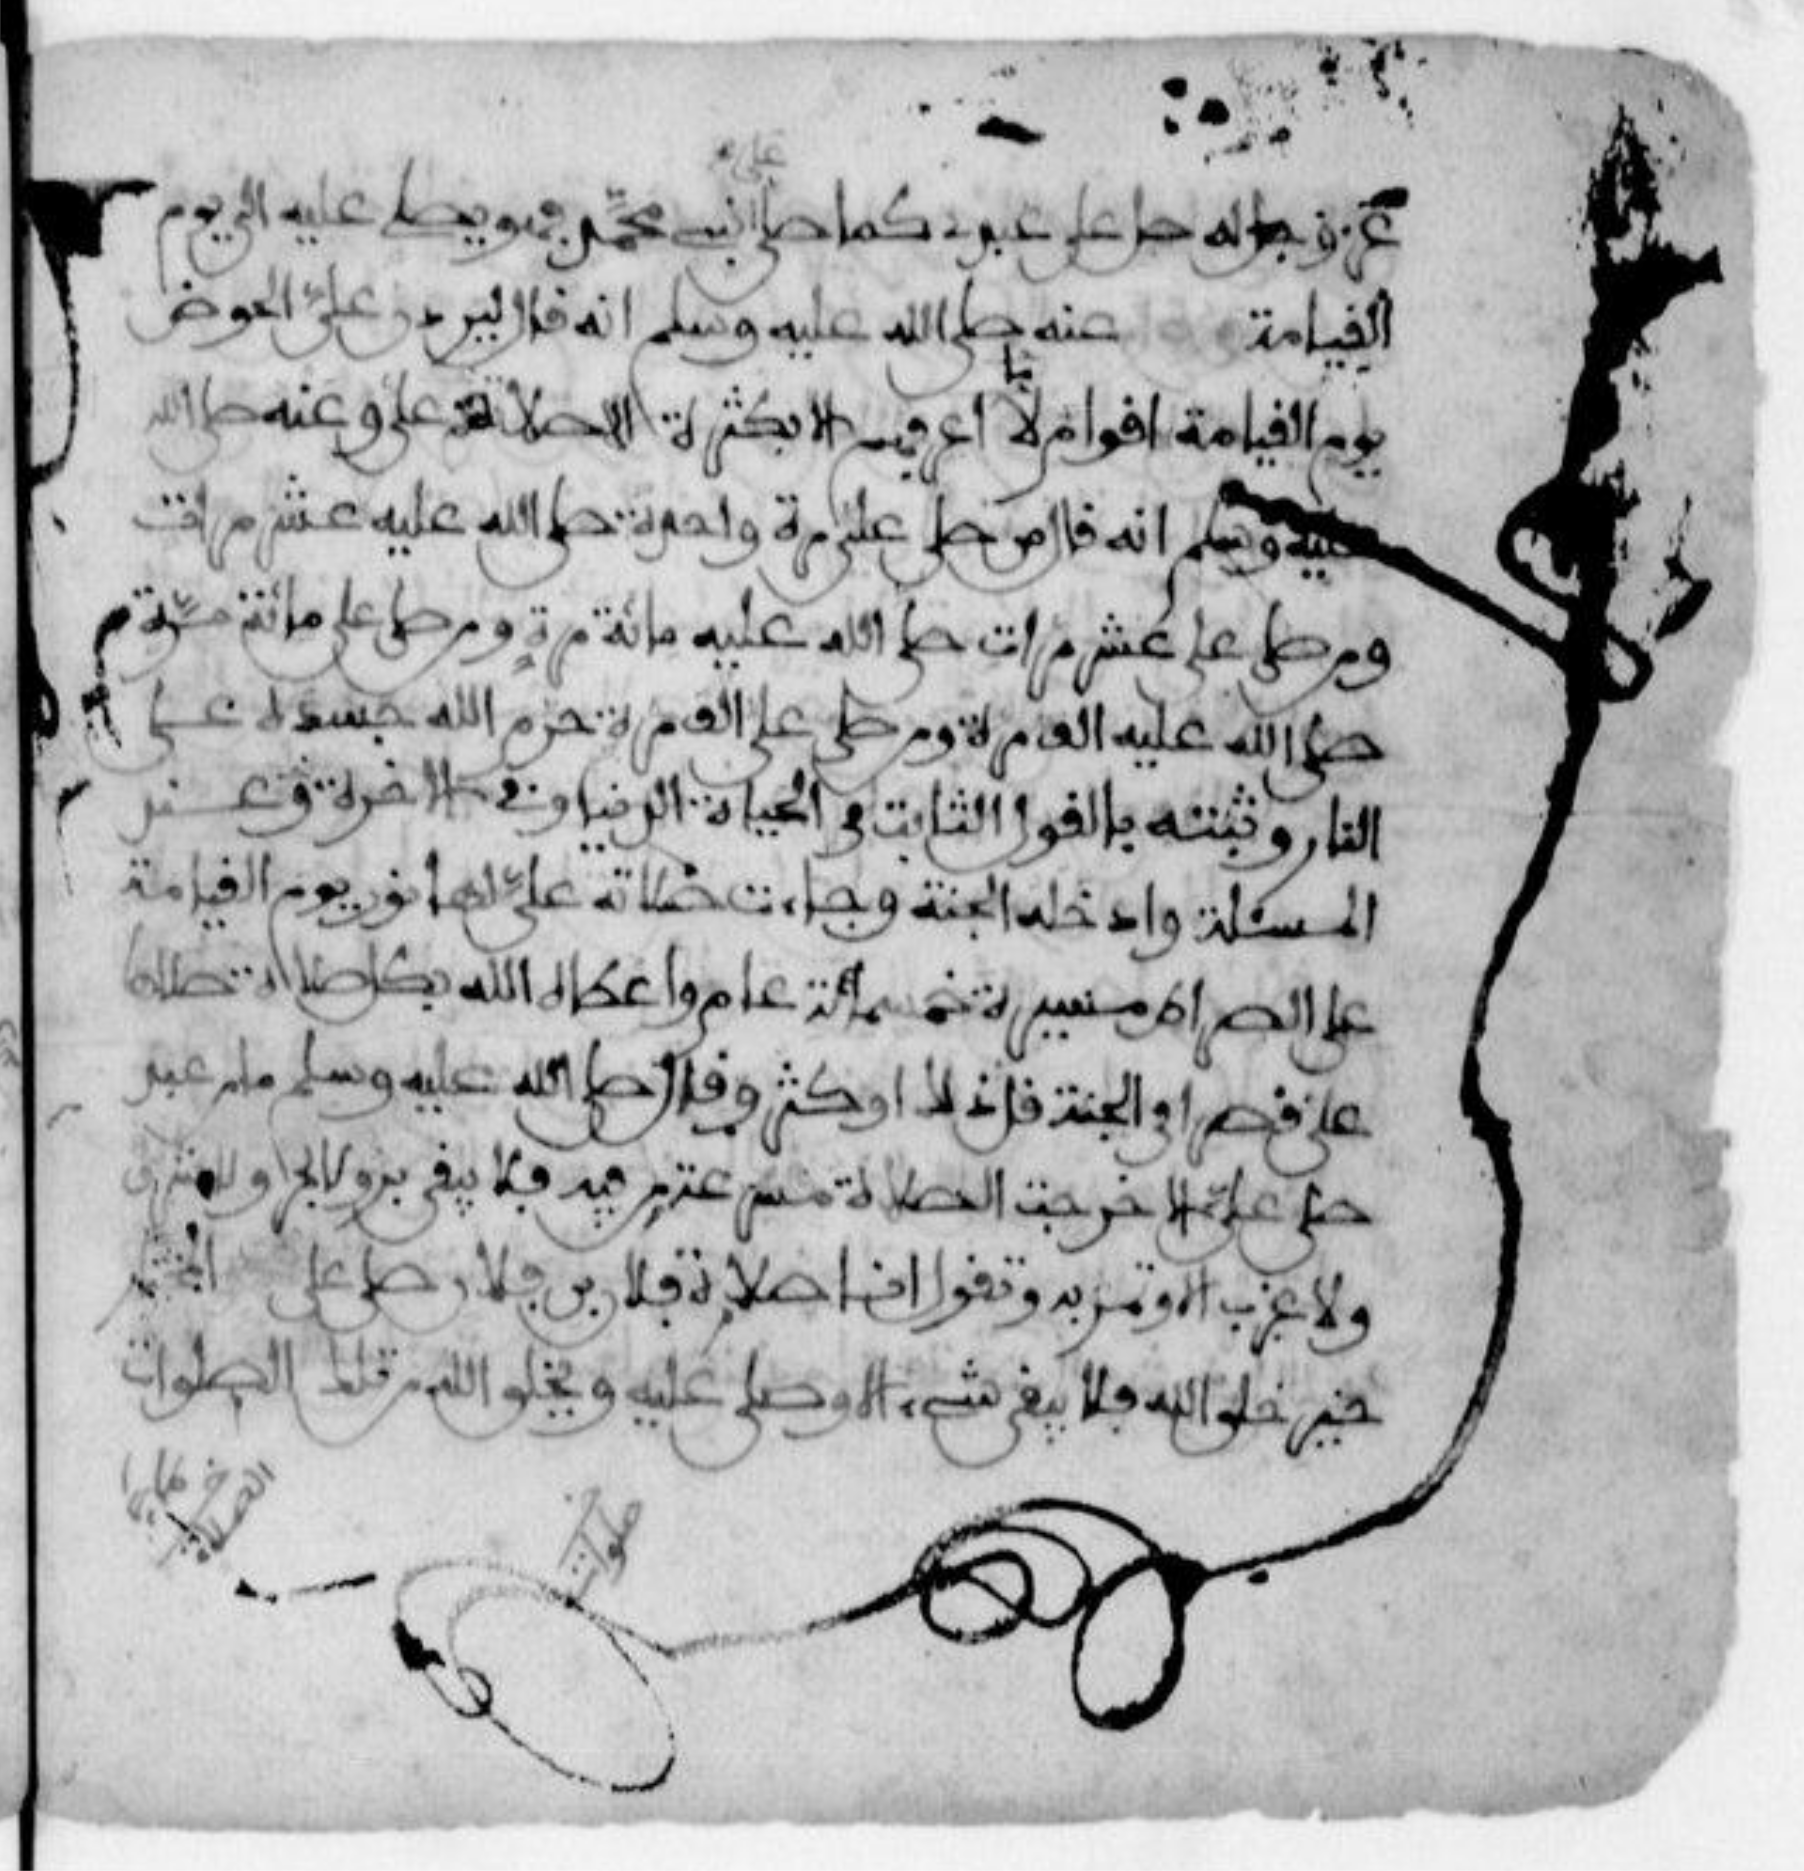 عز وجل له صل على عبدى كما صلى على نبيى محمد فهو يصلى عليه الى يوم
القيامة عنه صلى الله عليه وسلم انه قال ليردن على الحوض
يوم القيامة اقوام لا اعرفهم الا بكثرة الصلاة على وعنه صلى الله
عليه وسلم انه قال من صلى على مرة واحدة صلى الله عليه عشر مرات
ومن صلى على عشر مرات صلى الله عليه مائة مرة ومن صلى على مائة مرة
صلى الله عليه الف مرة ومن صلى على الف مرة حرم الله جسده على
النار وثبته بالقول الثابت في الحياة الدنيا وفي الاخرة وعند
المسئلة وادخله الجنة وجاءت صلاته على لها نور يوم القيامة
على الصراط مسيرة خمسمائة عام واعطاه الله بكل صلاة صلاها
على قصرا في الجنة قل ذلك او كثر وقال صلى الله عليه وسلم ما من عبد
صلى على الا خرجت الصلاة مسرعة من فيه فلا يبقى بر ولا بحر ولا شرق
ولا غرب الا وتمر به وتقول انا صلاة فلان بن فلان صلى على المختار
خير خلق الله فلا يبقى شيء الا وصلى عليه ويخلق الله من تلك الصلوات
صلوات